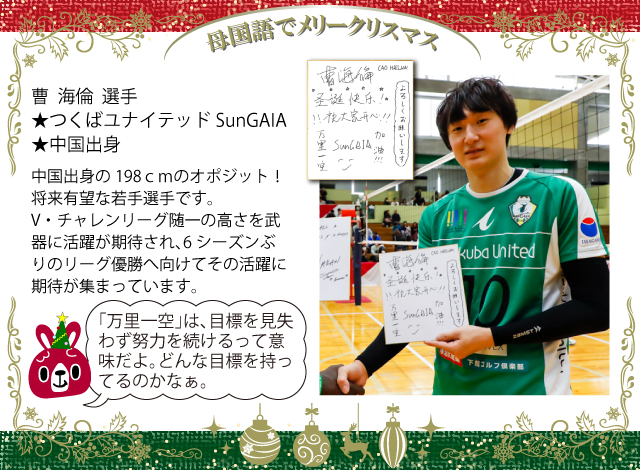 母国語でメリークリスマス
曹 海倫 選手
★つくばユナイテッド SunGAIA
★中国出身
中国出身の 198ｃmのオポジット！
将来有望な若手選手です。
V・チャレンリーグ随一の高さを武
器に活躍が期待され、6 シーズンぶ
りのリーグ優勝へ向けてその活躍に
期待が集まっています。
「万里一空」は、目標を見失
わず努力を続けるって意
味だよ。どんな目標を持っ
てるのかなぁ。
曹海倫
CAO HAILUN
圣诞快乐！
祝大家开心!!
万里一空
SunGAIA
加油!!!
よろしくお願いします
kuba United
10
下館ゴルフ倶楽部
曹海倫
CAO HAILUN
圣诞快乐!
祝大家开心!!
万里一空
SunGAIA
加油!!!
よろしくお願いします